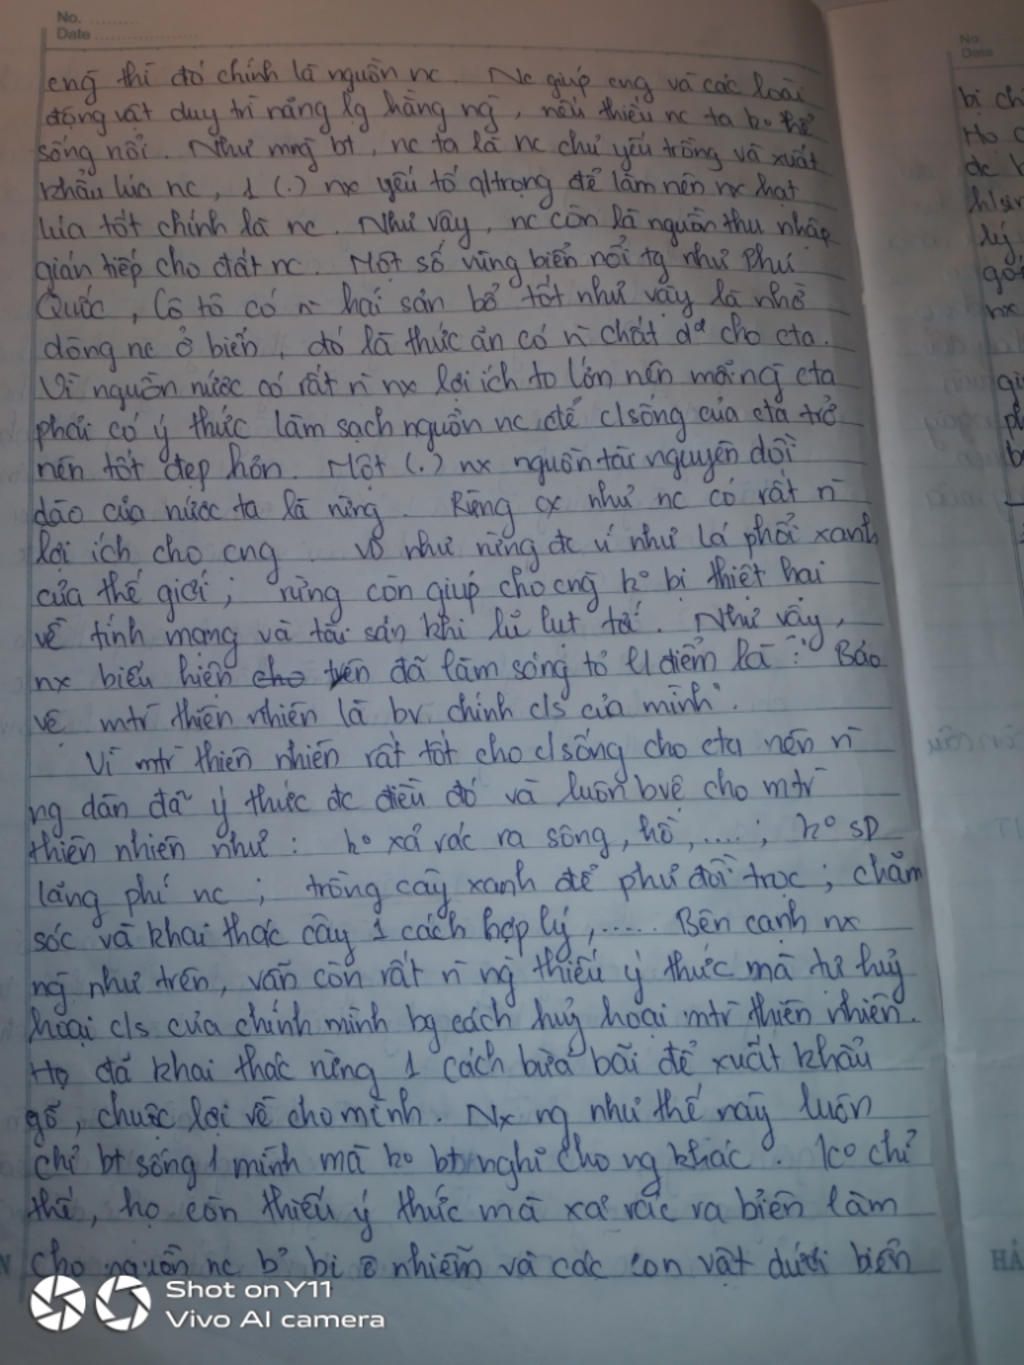 No. ............
Date ....................
cng thì đó chính là nguồn nc. Nc giúp cng và các loài
động vật duy trì năng lg hằng ng, nếu thiếu nc ta ko thể
sống nổi. Như mng bt, nc ta là nc chủ yếu trồng và xuất
khẩu lúa nc, 1 (.) nx yếu tố q/trọng để làm nên nx hạt
lúa tốt chính là nc. Như vậy, nc còn là nguồn thu nhập
gián tiếp cho đất nc. Một số vùng biển nổi tg như Phú
Quốc, Cô tô có n̄ hải sản bổ tốt như vậy là nhờ
dòng nc ở biển, đó là thức ăn có n̄ chất d² cho cta.
Vì nguồn nước có rất n̄ nx lợi ích to lớn nên mỗi ng cta
phải có ý thức làm sạch nguồn nc để c/sống của cta trở
nên tốt đẹp hơn. Một (.) nx nguồn tài nguyên dồi
dào của nước ta là rừng. Rừng cx như nc có rất n̄
lợi ích cho cng vd như rừng đc ví như lá phổi xanh
của thế giới; rừng còn giúp cho cng ko bị thiệt hại
về tính mạng và tài sản khi lũ lụt tới. Như vậy,
nx biểu hiện cho trên đã làm sáng tỏ l/điểm là: "Bảo
vệ mtr thiên nhiên là bv chính c/s của mình".
Vì mtr thiên nhiên rất tốt cho c/sống cho cta nên n̄
ng dân đã ý thức đc điều đó và luôn bvệ cho mtr
thiên nhiên như: ko xả rác ra sông, hồ,....; ko SD
lãng phí nc; trồng cây xanh để phủ đồi trọc; chăm
sóc và khai thác cây 1 cách hợp lý,..... Bên cạnh nx
ng như trên, vẫn còn rất n̄ ng thiếu ý thức mà tự huỷ
hoại c/s của chính mình bg cách huỷ hoại mtr thiên nhiên.
Họ đã khai thác rừng 1 cách bừa bãi để xuất khẩu
gỗ, chuộc lợi về cho mình. Nx ng như thế này luôn
chỉ bt sống 1 mình mà ko bt nghĩ cho ng khác. Ko chỉ
thế, họ còn thiếu ý thức mà xả rác ra biển làm
cho nguồn nc bị ô nhiễm và các con vật dưới biển
No
Date
bị ch
Họ c
đc b
h/sin
lý
gó
nx
gi
ph
b
HẢ
Shot on Y11
Vivo AI camera